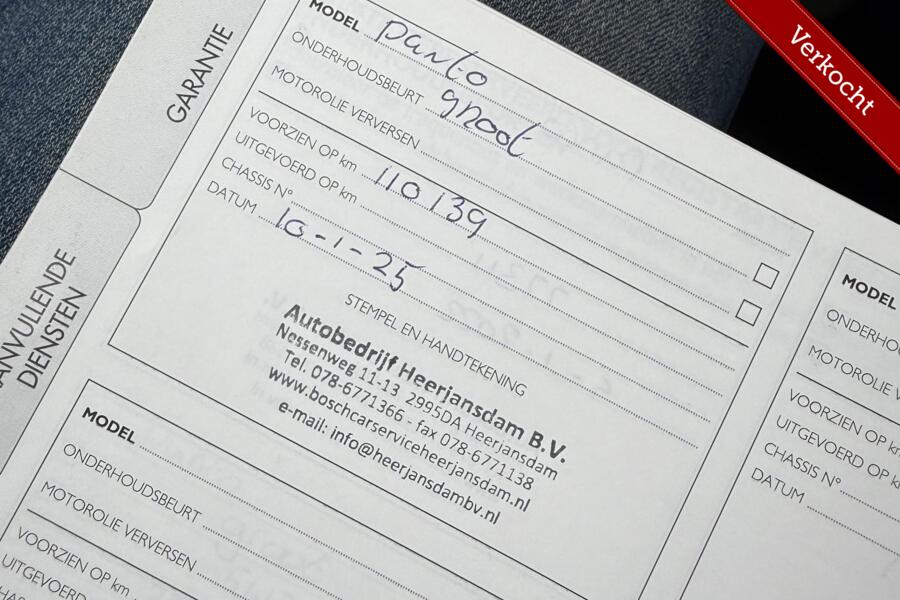 Verkocht
GARANTIE
MODEL Panto
ONDERHOUDSBEURT groot
MOTOROLIE VERVERSEN
VOORZIEN OP km
UITGEVOERD OP km 110139
CHASSIS N°
DATUM 16-1-25
STEMPEL EN HANDTEKENING
Autobedrijf Heerjansdam B.V.
Nessenweg 11-13 2995DA Heerjansdam
Tel. 078-6771366 - fax 078-6771138
www.boschcarserviceheerjansdam.nl
e-mail: info@heerjansdambv.nl
ANVULLENDE
DIENSTEN
MODEL
ONDERHOUDSBEURT
MOTOROLIE VERVERSEN
VOORZIEN OP km
UITGEVOERD
CHAS
MODEL
ONDERHOU
MOTOROLIE V
VOORZIEN OP km
UITGEVOERD OP
CHASSIS N°
DATUM